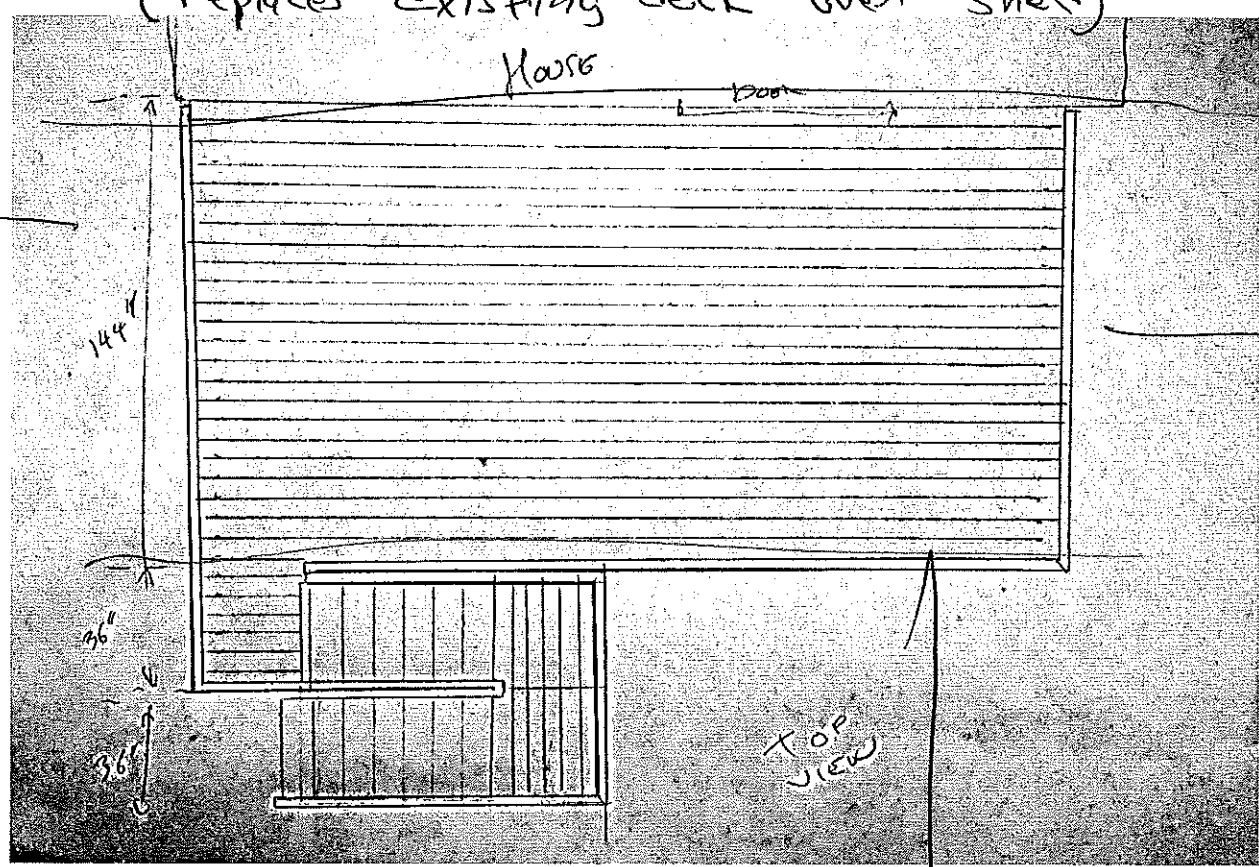 (replaces existing deck over shed)
House
Door
144"
36"
36"
TOP
VIEW